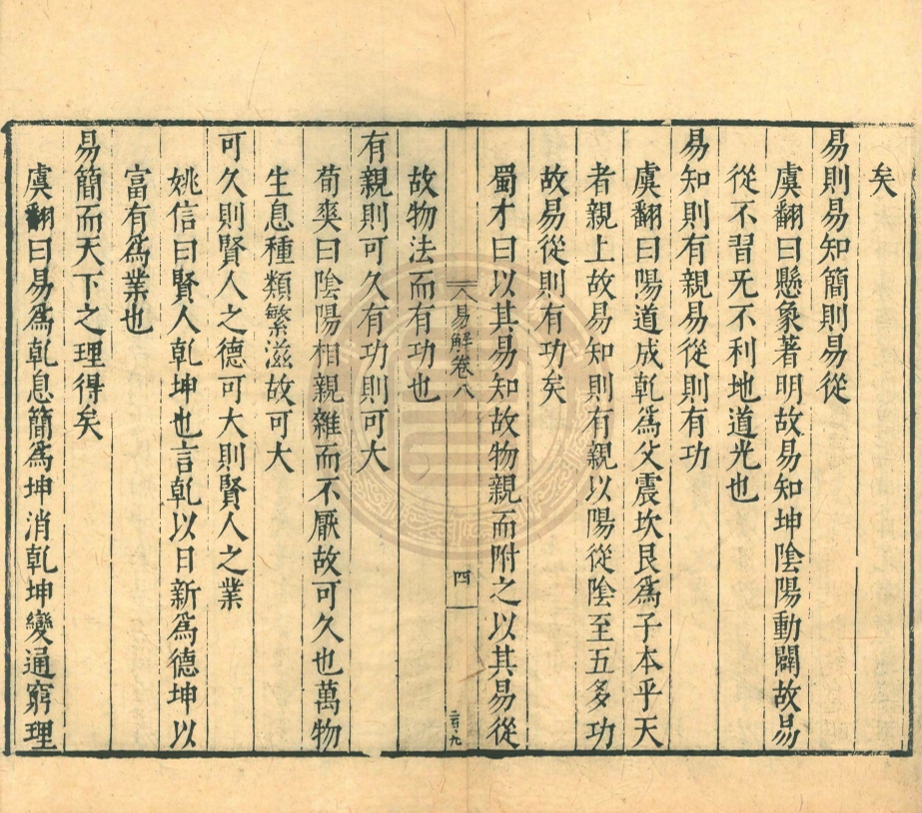 矣
易則易知簡則易從
虞翻曰懸象著明故易知坤陰陽動闢故易
從不習旡不利地道光也
易知則有親易從則有功
虞翻曰陽道成乾爲父震坎艮爲子本乎天
者親上故易知則有親以陽從陰至五多功
故易從則有功矣
蜀才曰以其易知故物親而附之以其易從
易解卷八
四
故物法而有功也
有親則可久有功則可大
荀爽曰陰陽相親雜而不厭故可久也萬物
生息種類繁滋故可大
可久則賢人之德可大則賢人之業
姚信曰賢人乾坤也言乾以日新爲德坤以
富有爲業也
易簡而天下之理得矣
虞翻曰易爲乾息簡爲坤消乾坤變通窮理